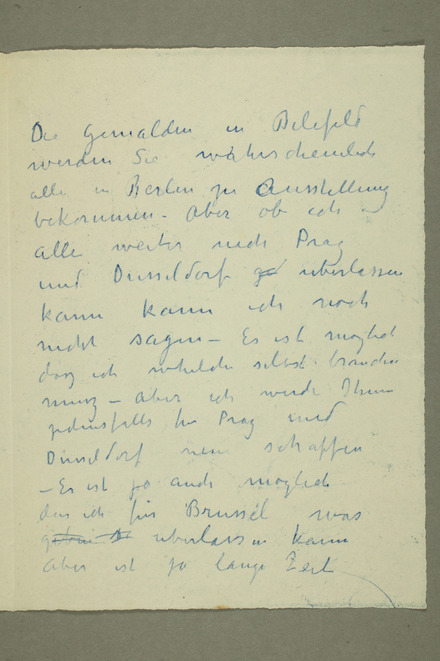 Die Gemalden in Bilefeld
werden Sie wahrscheinlich
alle in Berlin zu Ausstellung
bekommen - Aber ob ich
alle weiter nach Prag
und Dusseldorf uberlassen
kann kann ich noch
nicht sagen - Es ist moglich
das ich selbst brauchen
- Aber ich werde Ihnen
jedenfalls fur Prag und
Dusseldorf neu schaffen
- Es ist ja auch moglich
das ich für Brussel was
uberlassen kann
aber ist ja lange Zeit